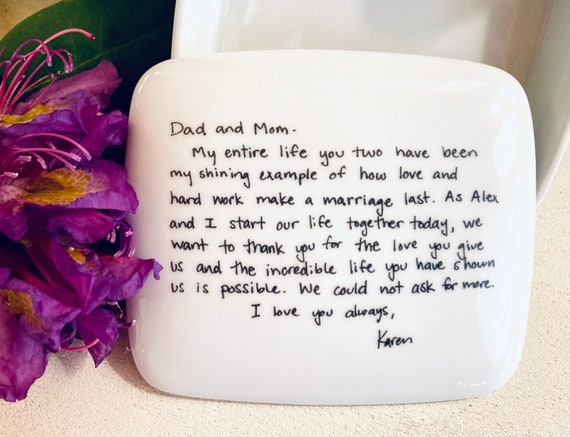 Dad and Mom-
My entire life you two have been
my shining example of how love and
hard work make a marriage last. As Alex
and I start our life together today, we
want to thank you for the love you give
us and the incredible life you have shown
us is possible. We could not ask for more.
I love you always,
Karen